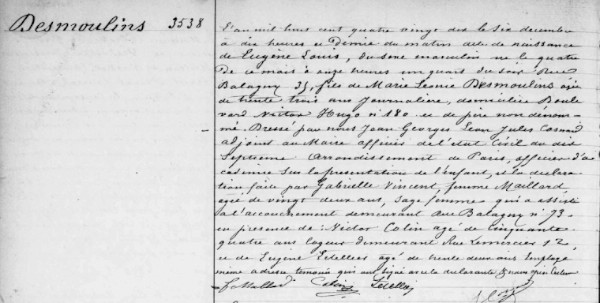 Desmoulins 3538
L'an mil huit cent quatre vingt dix le six décembre
à dix heures et Demie du matin acte de naissance
de Eugène Louis, du sexe masculin né le quatre
De ce mois à onze heures un quart du soir Rue
Balagny 35, fils de Marie Léonie Desmoulins agée
de trente trois ans Journalière, domiciliée Boule
vard Victor Hugo n° 180 et de père non dénom-
mé. Dressé par nous Jean Georges Léon Jules
adjoint au Maire officier de l'état Civil du dix
Septième arrondissement de Paris, officier d'a
cadémie Sur la présentation de l'enfant et la déclara
tion faite par Gabrielle Vincent, femme Maillard
agée de vingt deux ans, Sage femme qui a assisté
à l'accouchement demeurant Rue Balagny n° 73
en présence de Victor Colin agé de Cinquante
quatre ans logeur demeurant Rue Lemercier 12,
et de Eugène agé de trente deux ans Employé
même adresse témoins qui ont signé avec la déclarante & nous après lecture
F. Maillard Colin